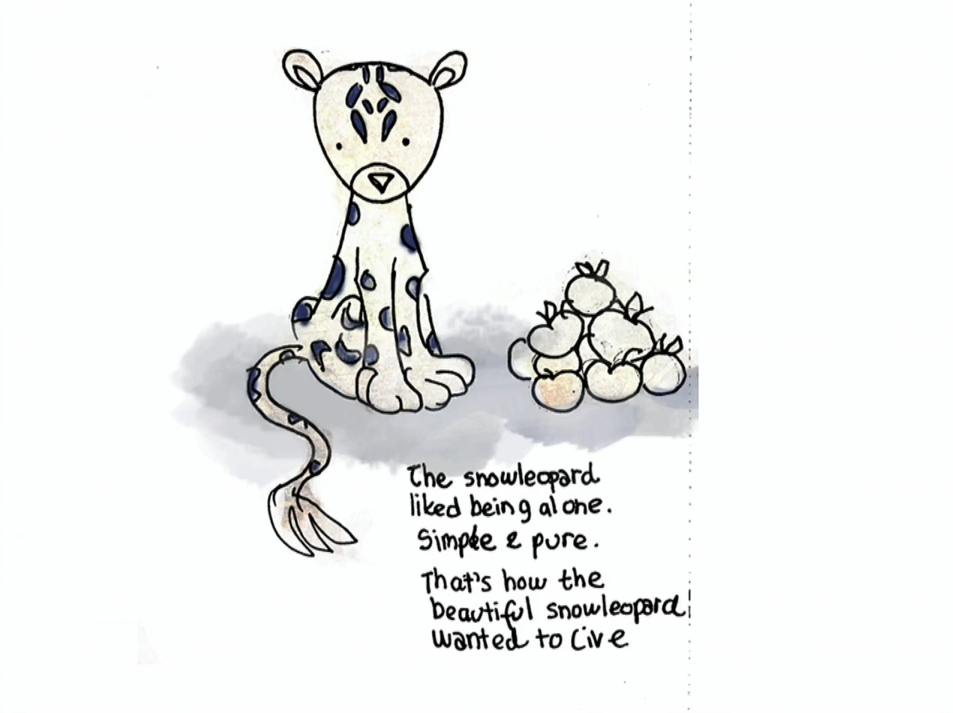 The snowleopard
liked being alone.
Simple & pure.
That's how the
beautiful snowleopard
wanted to live